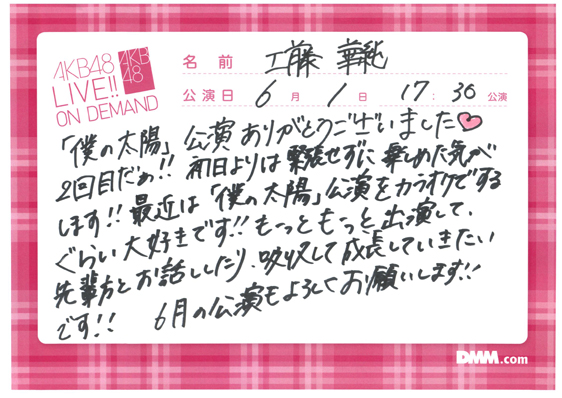 AKB48
LIVE!!
ON DEMAND
AKB
48
名前 工藤 華純
公演日 6月1日 17:30公演
「僕の太陽」公演ありがとうございました♡
2回目だぁ!! 初日よりは緊張せずに楽しめた気が
します!! 最近は「僕の太陽」公演をカラオケでする
ぐらい大好きです!! もっともっと出演して、
先輩方とお話ししたり、吸収して成長していきたい
です!! 6月の公演もよろしくお願いします!!
DMM.com